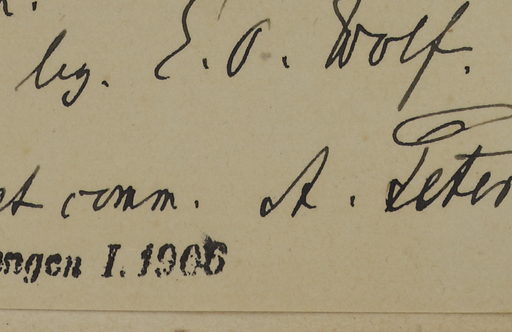 leg. E. O. Wolf.
et comm. A. Peter
ngen I. 1906